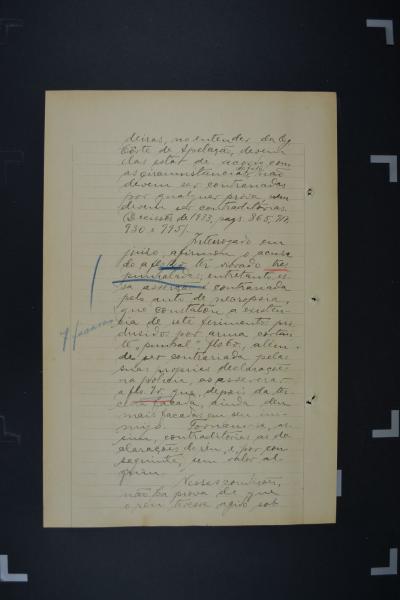 deiras, no entender da Eg.
Côrte de Apelação, devem
elas estar de acôrdo com
as circumstancias do facto, não
devem ser contrariadas
por qualquer prova, nem
devem ser contraditorias.
(Decisões de 1933, pags. 865,
930 e 995).
Interrogado em
juizo, afirmou o acusa-
do a fls. ter vibrado tres
punhaladas; entretanto, es-
sa asserção é contrariada
pelo auto de necropsia,
que constatou a existen-
cia de sete ferimentos pro-
dusidos por arma cortan-
te "punhal", fls. 60, além
de ser contrariada pelas
suas proprias declarações
na policia, ao asseverar
a fls. que, depois da ter-
ceira facada, ainda deu
mais facadas em seu ini-
migo. Tornam-se, as-
sim, contraditorias as de-
clarações do réu, e, por con-
seguinte, sem valor al-
gum.
Nessas condições,
não ha prova de que
o réu tivesse agido sob
7 facadas